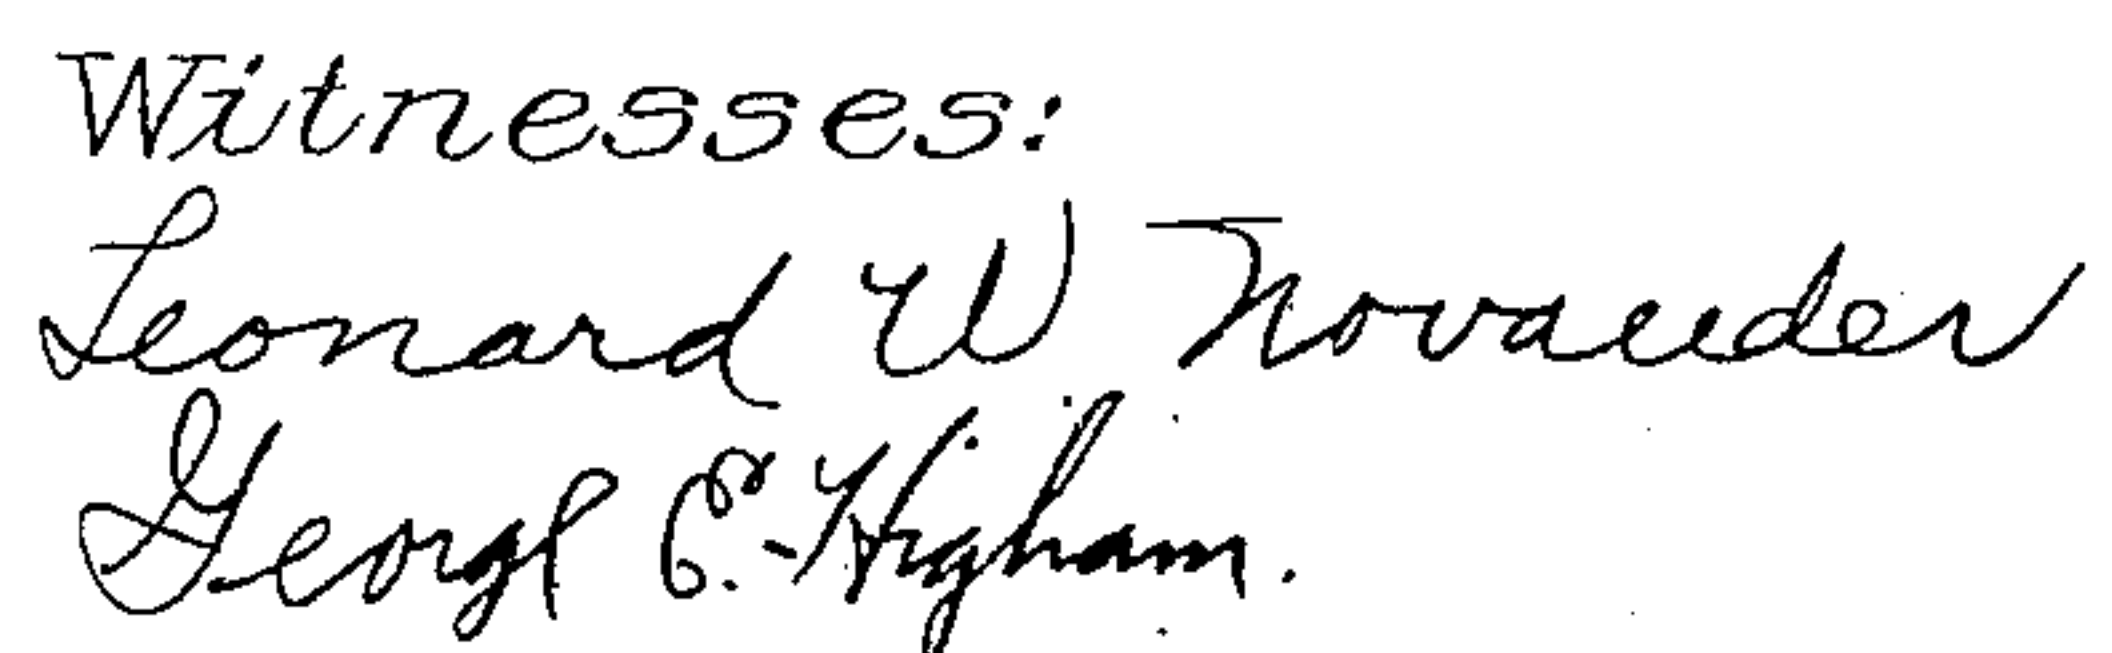 Witnesses:
Leonard W. Novander
George C. Higham.